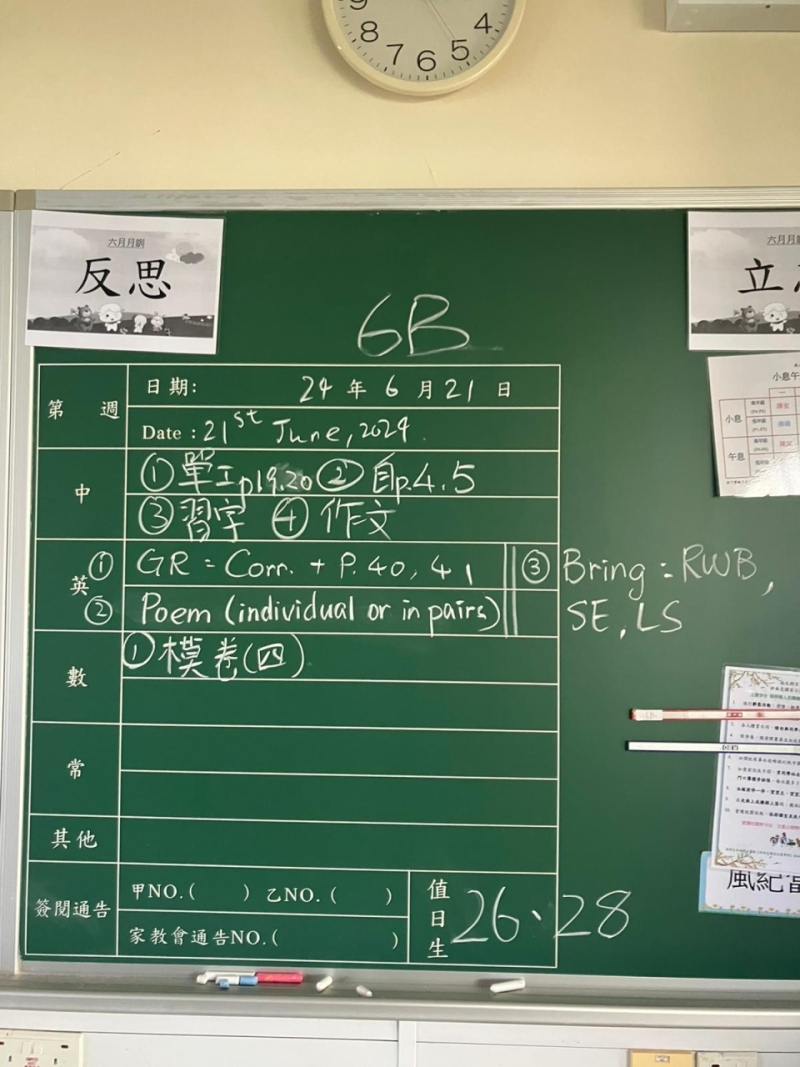 9
8
7
6
5
4
六月月訓
反思
6B
第 週
日期: 24 年 6 月 21 日
Date : 21st June, 2024.
中
①單工p19.20 ②自p.4.5
③習字 ④作文
英
① GR = Corr. + P.40, 41
② Poem (individual or in pairs)
③ Bring : RWB,
SE, LS
數
①模卷(四)
常
其他
簽閱通告
甲NO.( ) 乙NO.( )
家教會通告NO.( )
值日生
26、28
六月月
立
小息午
小息
午息
風紀